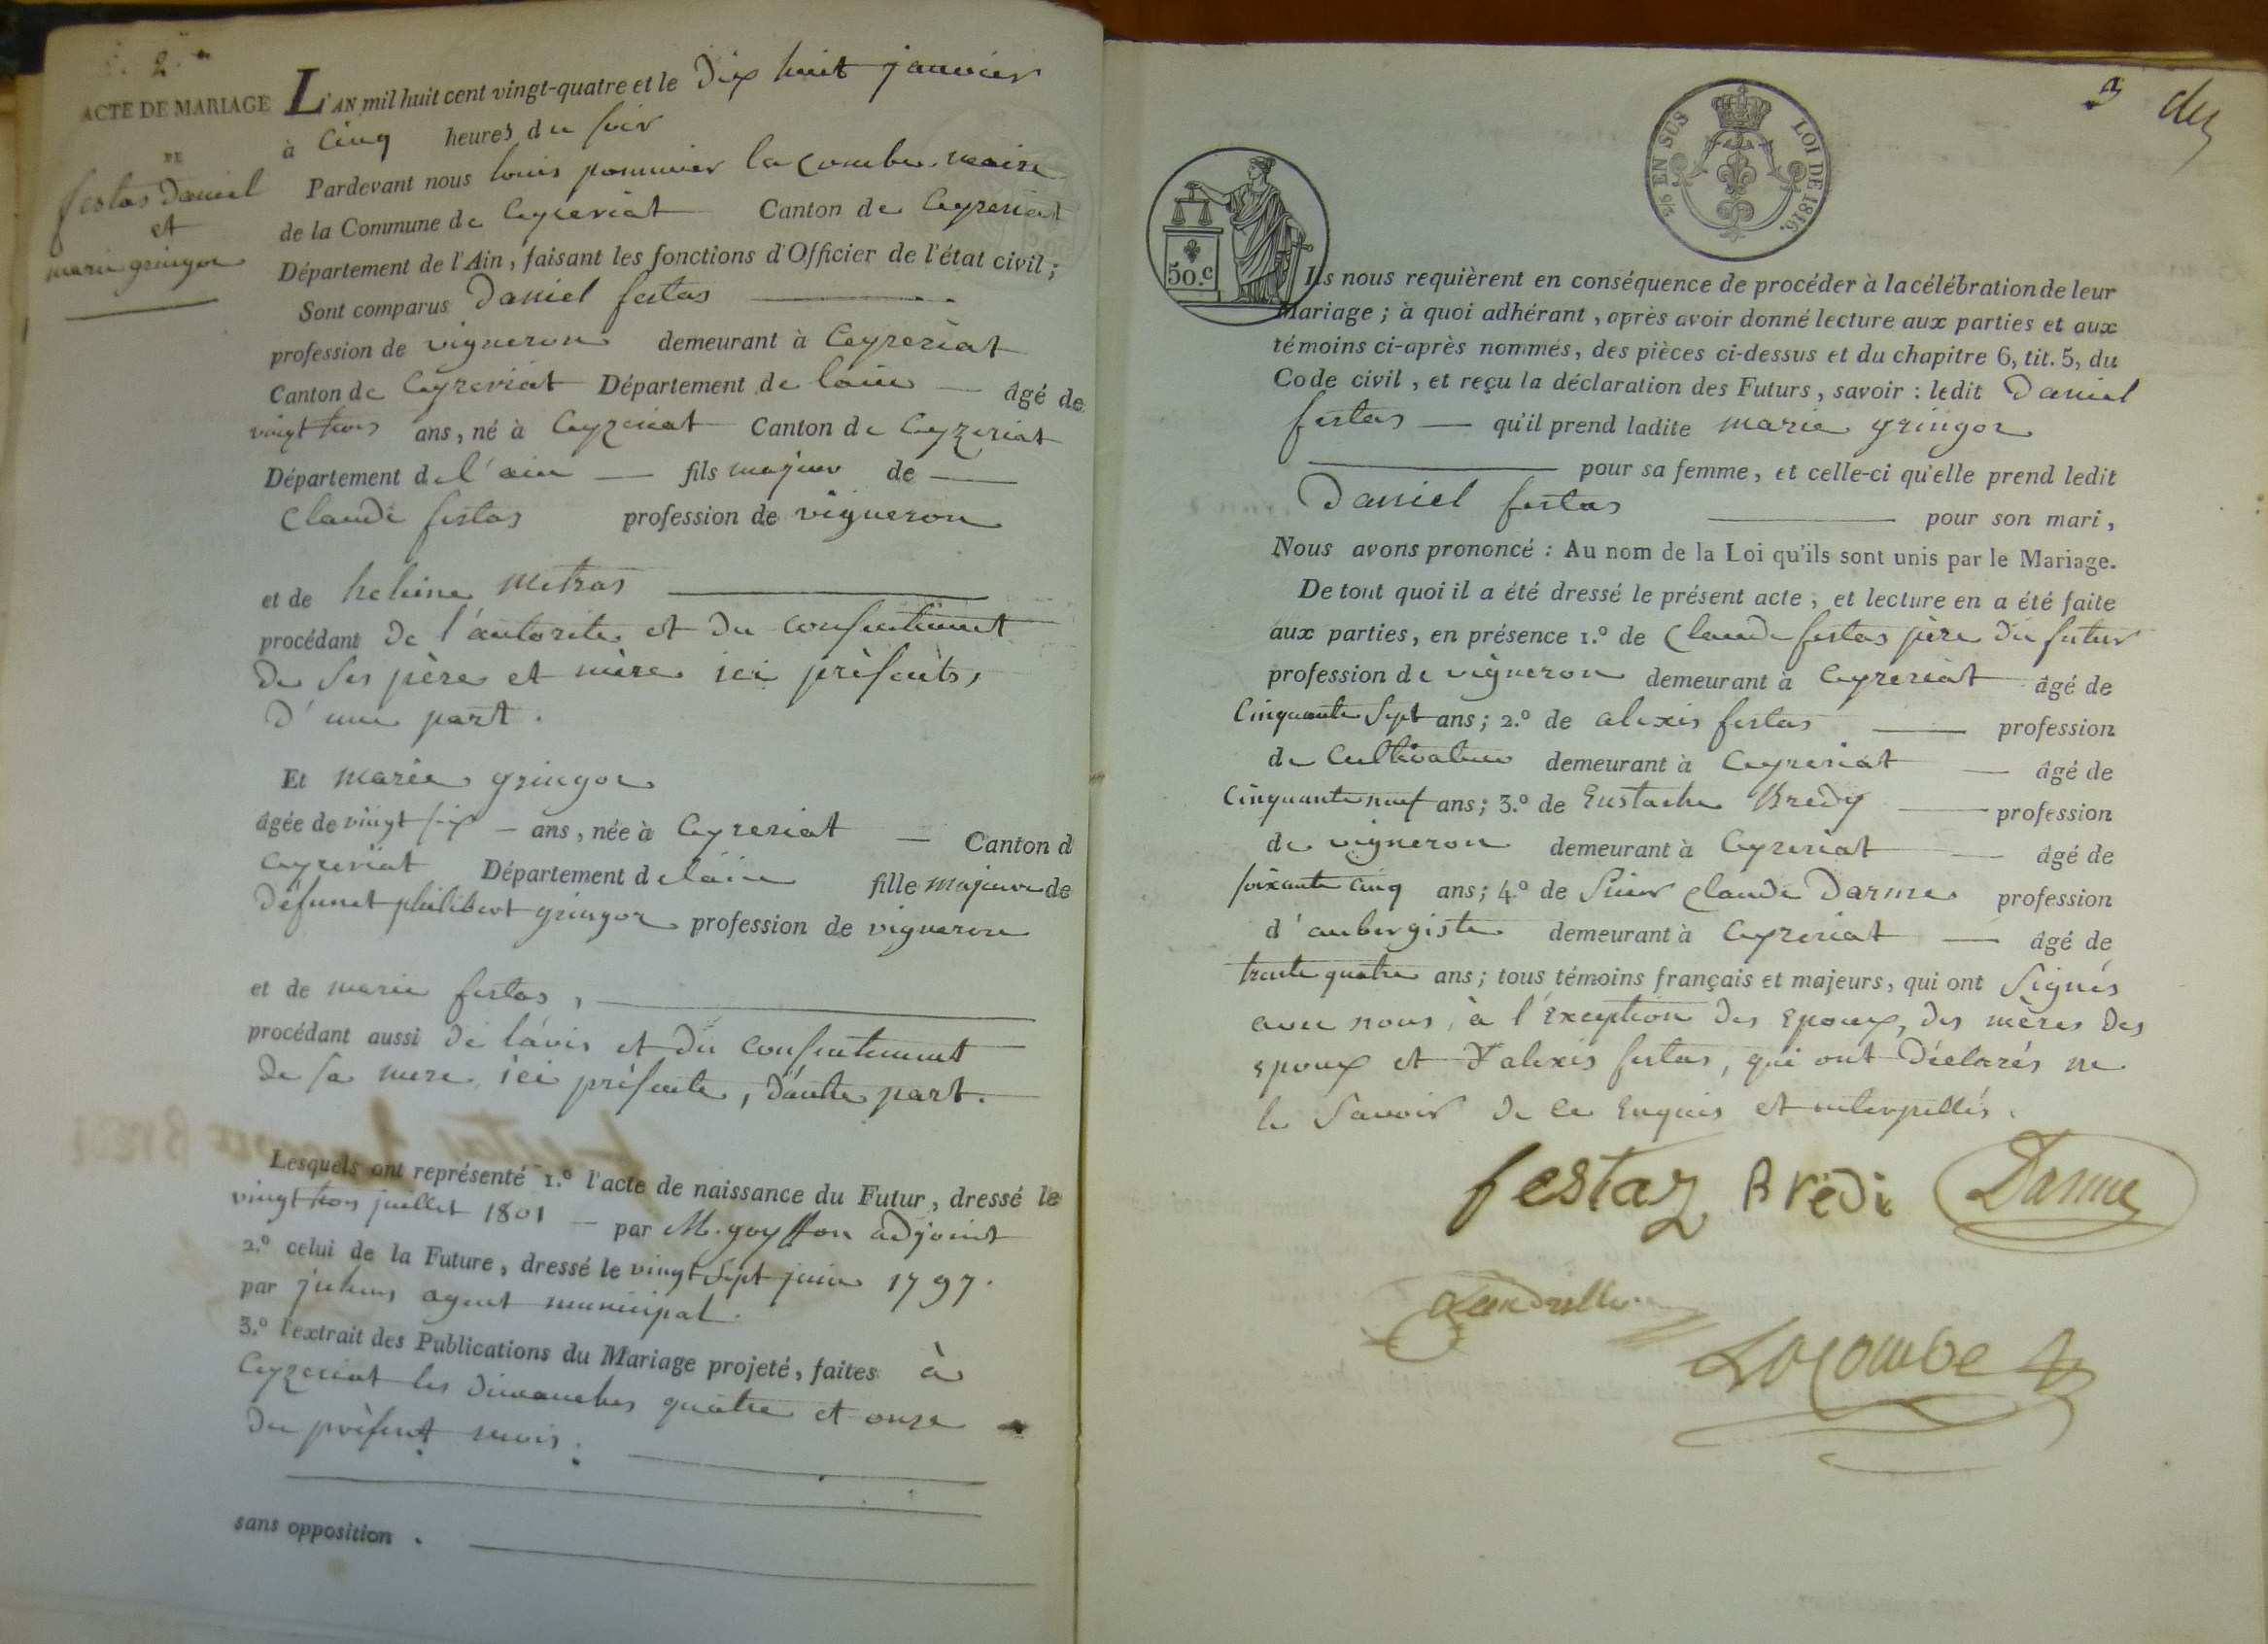 2.
ACTE DE MARIAGE
DE
festas Daniel
et
marie gringoz
L'AN mil huit cent vingt-quatre et le Dix huit janvier
à Cinq heures du soir
Pardevant nous louis pommier lacombe maire
de la Commune de Ceyzeriat Canton de Ceyzeriat
Département de l'Ain, faisant les fonctions d'Officier de l'état civil;
Sont comparus Daniel festas
profession de vigneron demeurant à Ceyzeriat
Canton de Ceyzeriat Département de lain âgé de
vingt trois ans, né à Ceyzeriat Canton de Ceyzeriat
Département de l'ain fils majeur de
Claude festas profession de vigneron
et de heleine Metras
procédant de l'autorite et du consentement
de ses père et mère ici présents,
d'une part.
Et marie gringoz
âgée de vingt six ans, née à Ceyzeriat Canton d
Ceyzeriat Département de lain fille majeure de
défunt philibert gringoz profession de vigneron
et de marie festas,
procédant aussi de lavis et du consentement
de sa mere ici présente, d'aute part.
Lesquels ont représenté 1.º l'acte de naissance du Futur, dressé le
vingt trois juillet 1801 par M. goyffon adjoint
2.º celui de la Future, dressé le vingt sept juin 1797.
par agent municipal.
3.º l'extrait des Publications du Mariage projeté, faites à
Ceyzeriat les dimanches quatre et onze
du présent mois.
sans opposition.
3
2/6 EN SUS LOI DE 1816.
50.c
Ils nous requièrent en conséquence de procéder à la célébration de leur
Mariage; à quoi adhérant, après avoir donné lecture aux parties et aux
témoins ci-après nommés, des pièces ci-dessus et du chapitre 6, tit. 5, du
Code civil, et reçu la déclaration des Futurs, savoir: ledit Daniel
festas qu'il prend ladite marie gringoz
pour sa femme, et celle-ci qu'elle prend ledit
Daniel festas pour son mari,
Nous avons prononcé: Au nom de la Loi qu'ils sont unis par le Mariage.
De tout quoi il a été dressé le présent acte, et lecture en a été faite
aux parties, en présence 1.º de Claude festas père du futur
profession de vigneron demeurant à Ceyzeriat âgé de
Cinquante sept ans; 2.º de alexis festas profession
de Cultivateur demeurant à Ceyzeriat âgé de
Cinquante neuf ans; 3.º de Eustache Bredy profession
de vigneron demeurant à Ceyzeriat âgé de
soixante cinq ans; 4.º de Sieur Claude Darme profession
d'aubergiste demeurant à Ceyzeriat âgé de
trente quatre ans; tous témoins français et majeurs, qui ont signés
avec nous, à l'exception des epoux, des mères des
epoux et d'alexis festas, qui ont déclarés ne
le savoir de ce enquis et interpellés.
festaz Bredi Darme
Lacombe